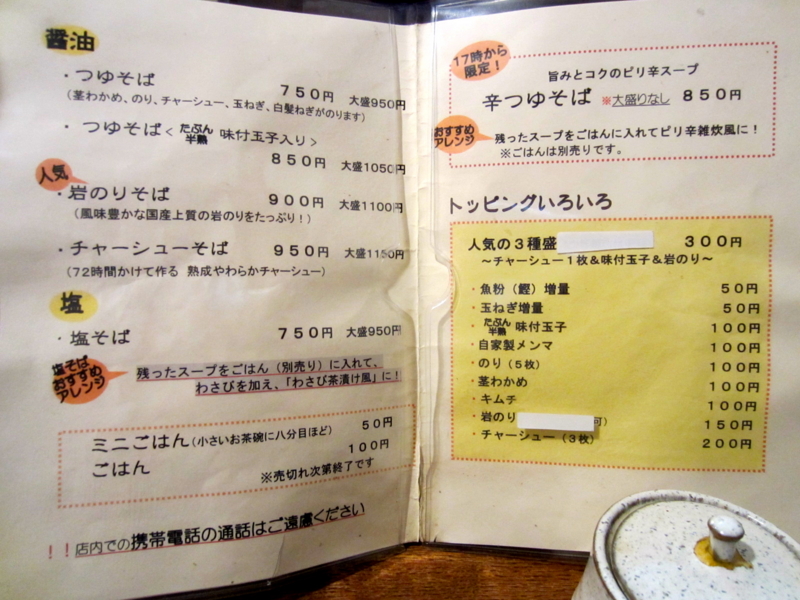 醤油
・つゆそば 750円 大盛950円
(茎わかめ、のり、チャーシュー、玉ねぎ、白髪ねぎがのります)
・つゆそば＜たぶん半熟 味付玉子入り＞
850円 大盛1050円
人気
・岩のりそば 900円 大盛1100円
(風味豊かな国産上質の岩のりをたっぷり！)
・チャーシューそば 950円 大盛1150円
(72時間かけて作る 熟成やわらかチャーシュー)
塩
・塩そば 750円 大盛950円
塩そば
おすすめ
アレンジ
残ったスープをごはん（別売り）に入れて、
わさびを加え、「わさび茶漬け風」に！
ミニごはん(小さいお茶碗に八分目ほど) 50円
ごはん 100円
※売切れ次第終了です
！！店内での携帯電話の通話はご遠慮ください
17時から
限定！
旨みとコクのピリ辛スープ
辛つゆそば ※大盛りなし 850円
おすすめ
アレンジ
残ったスープをごはんに入れてピリ辛雑炊風に！
※ごはんは別売りです。
トッピングいろいろ
人気の3種盛 300円
～チャーシュー1枚＆味付玉子＆岩のり～
・魚粉（鰹）増量 50円
・玉ねぎ増量 50円
・たぶん半熟 味付玉子 100円
・自家製メンマ 100円
・のり（5枚） 100円
・茎わかめ 100円
・キムチ 100円
・岩のり 可） 150円
・チャーシュー（3枚） 200円